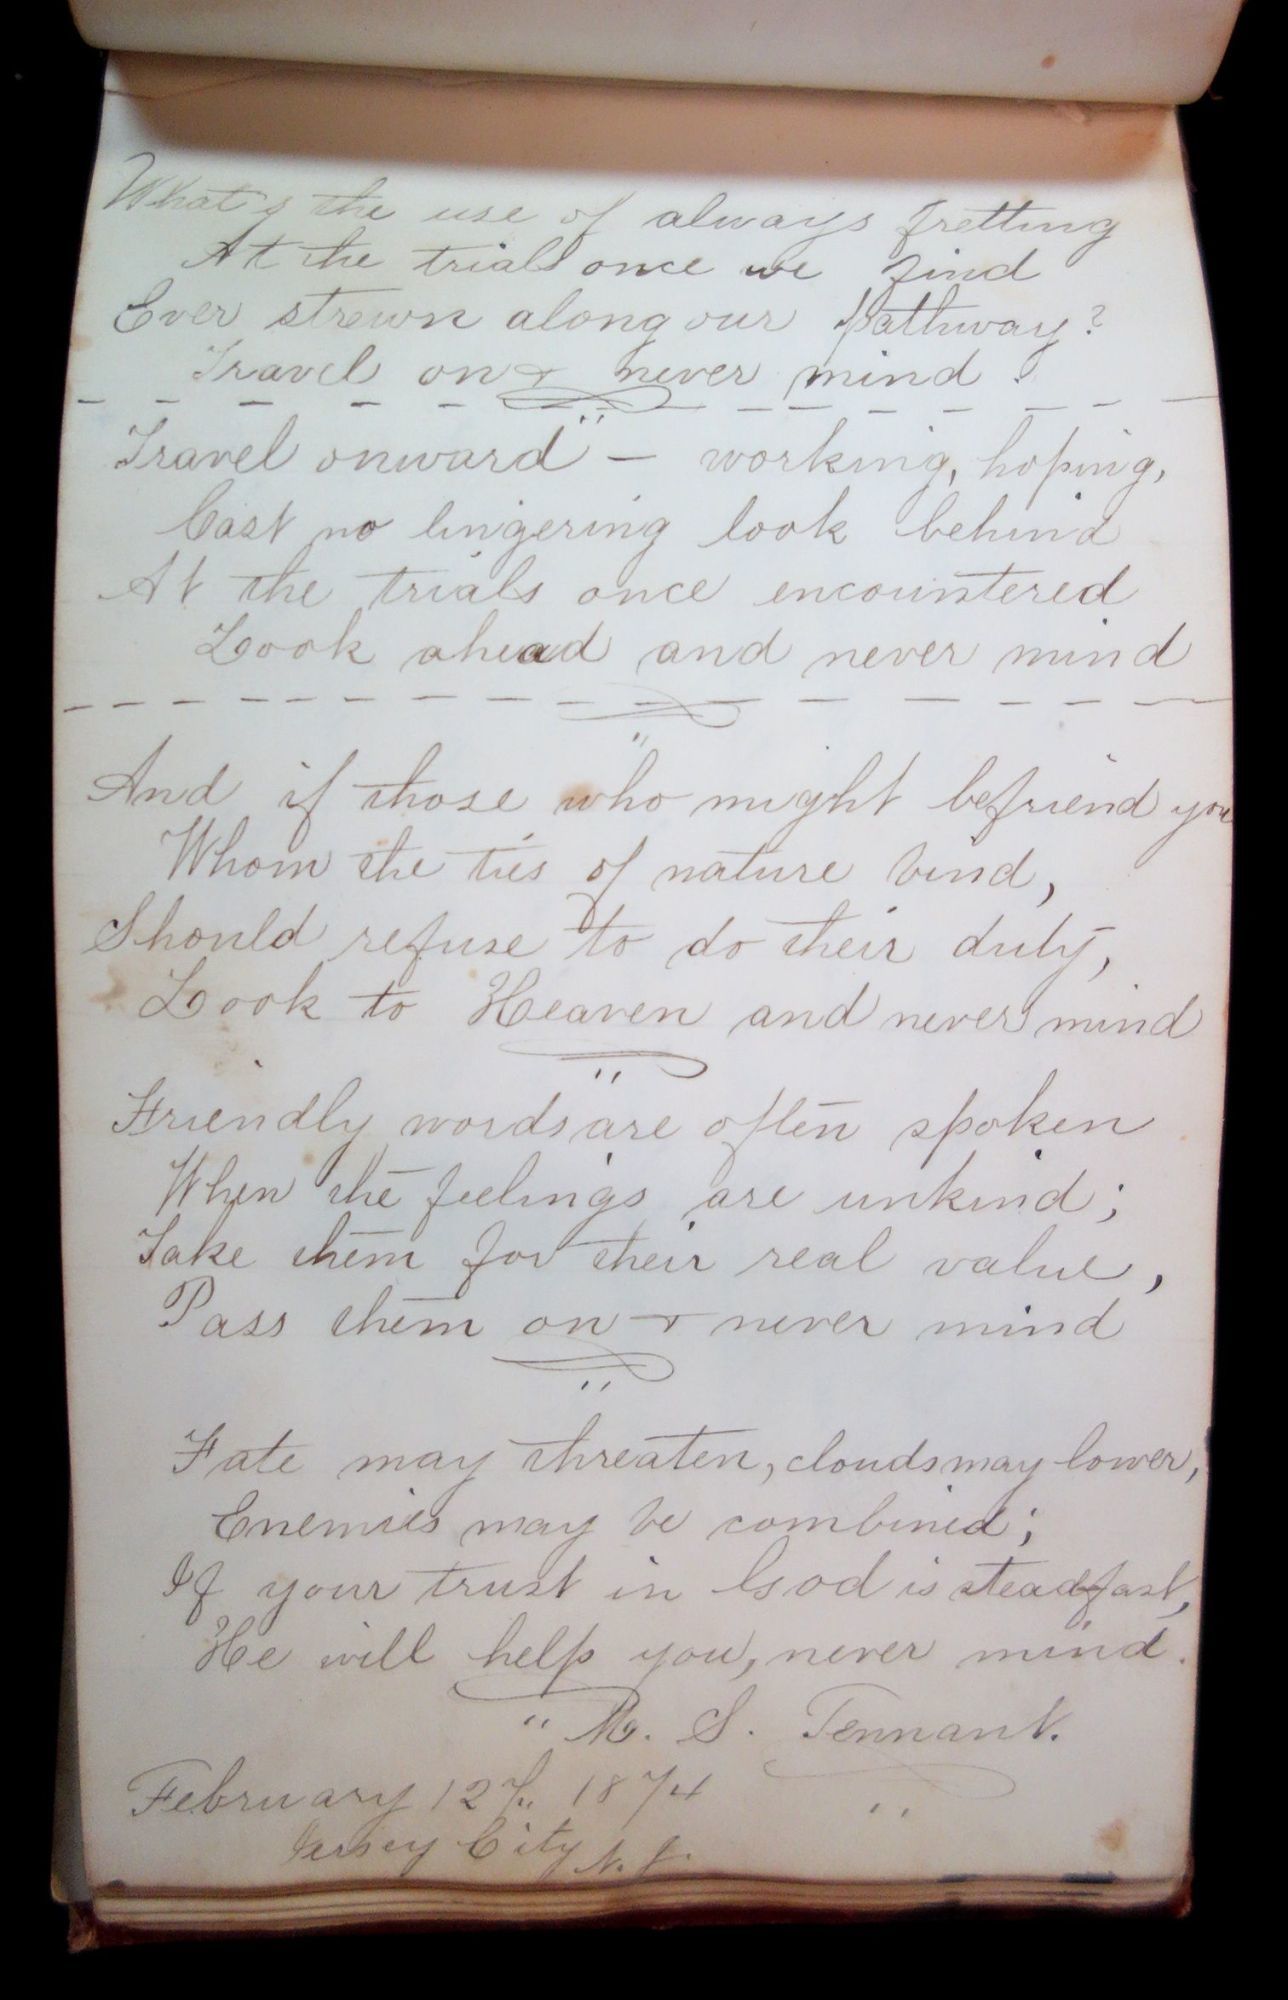 What's the use of always fretting
At the trials once we find
Ever strewn along our pathway?
Travel on & never mind.
Travel onward — working, hoping,
Cast no lingering look behind
At the trials once encountered
Look ahead and never mind
And if those who might befriend you
Whom the ties of nature bind,
Should refuse to do their duty,
Look to Heaven and never mind
Friendly words are often spoken
When the feelings are unkind;
Take them for their real value,
Pass them on & never mind
Fate may threaten, clouds may lower,
Enemies may be combined;
If your trust in God is steadfast,
He will help you, never mind.
M. S. Tennant.
February 12th 1874
Jersey City N. J.